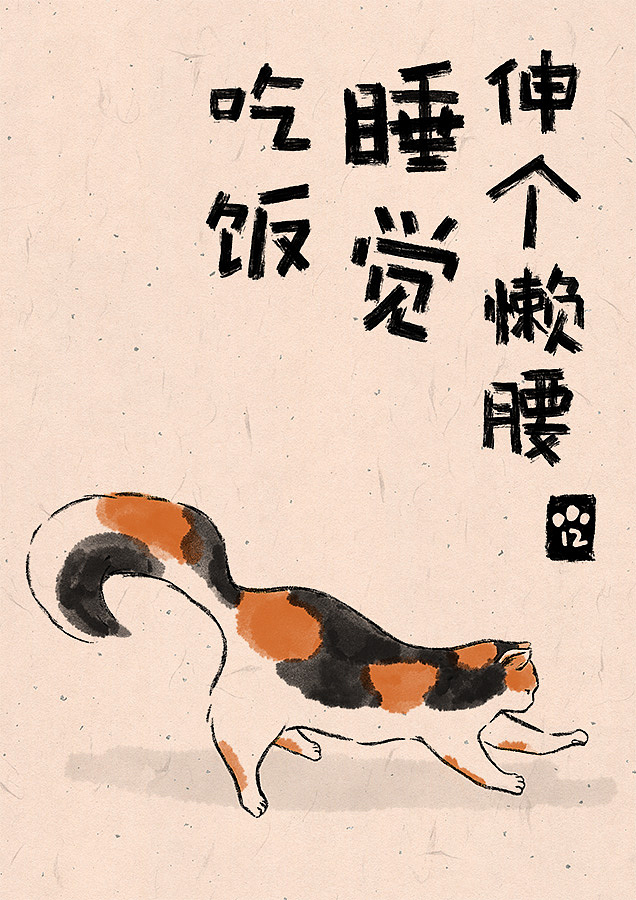 伸个懒腰
睡觉
吃饭
12